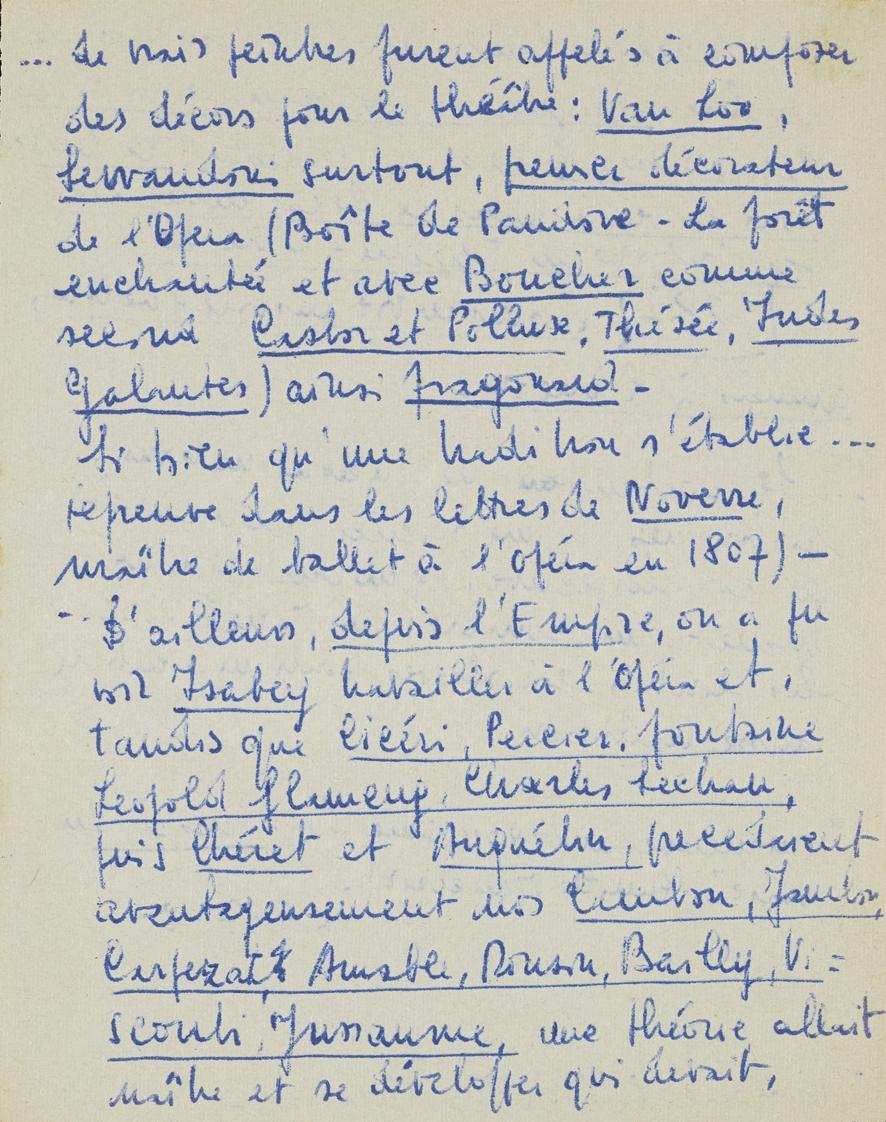 ... de vrais peintres furent appelés à composer
des décors pour le théâtre : Van Loo,
Servandoni surtout, premier décorateur
de l'Opéra (Boîte de Pandore - La forêt
enchantée et avec Boucher comme
second Castor et Pollux, Thésée, Indes
Galantes) ainsi Fragonard -
Si bien qu'une tradition s'établie ...
(épreuve dans les lettres de Noverre,
maître de ballet à l'Opéra en 1807) -
- D'ailleurs, depuis l'Empire, on a pu
voir Isabey travailler à l'Opéra et,
tandis que Cicéri, Percier, Fontaine
Leopold Flameng, Charles Séchan,
puis Chéret et Anquétin, précédèrent
avantageusement nos Cambon, Jambon,
Carpezat, Amable, Ronsin, Bailly, Vi=
sconti, Jusseaume, une théorie allait
naître et se développer qui devait,